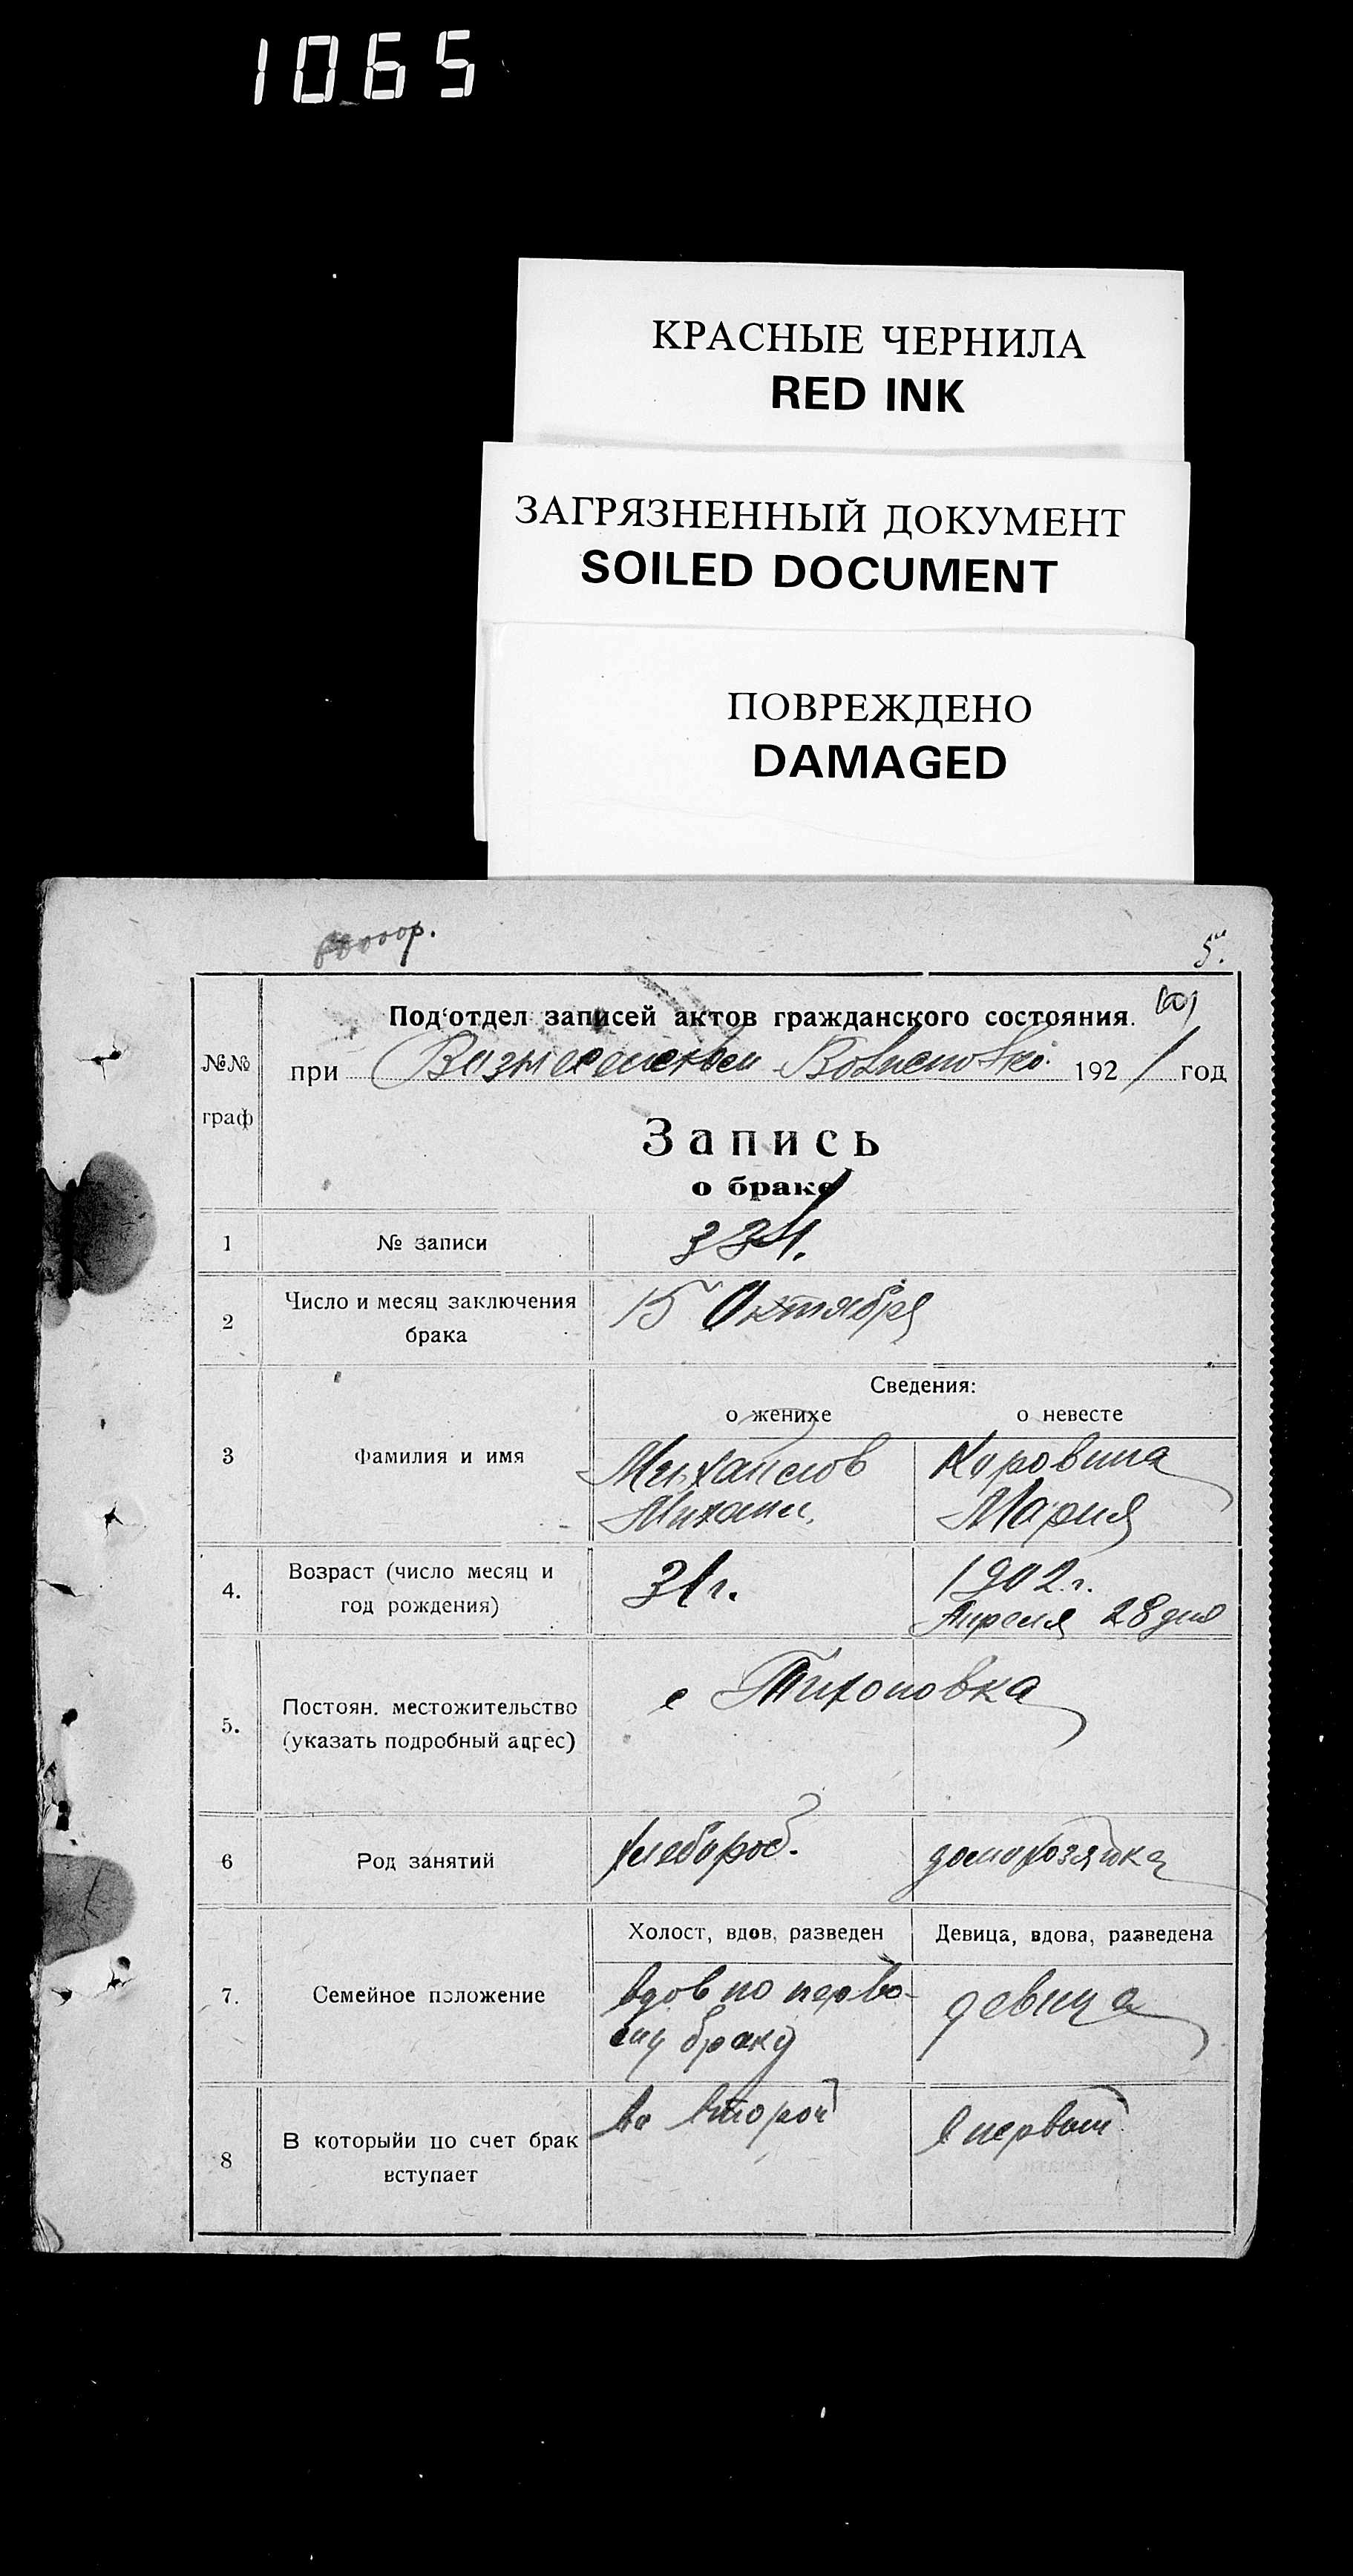 1065
КРАСНЫЕ ЧЕРНИЛА
RED INK
ЗАГРЯЗНЕННЫЙ ДОКУМЕНТ
SOILED DOCUMENT
ПОВРЕЖДЕНО
DAMAGED
5.
Под‘отдел записей актов гражданского состояния.
№№ граф
при Вознесенском Волисполко. 1921 год
Запись
о браке
1 № записи 334.
2 Число и месяц заключения брака 15 Октября
Сведения:
о женихе о невесте
3 Фамилия и имя
Михайлов Коровина
Михаил, Мария
4. Возраст (число месяц и год рождения)
31 г. 1902 г.
Апреля 28 дня
5. Постоян. местожительство (указать подробный адрес)
с Тихоновка
6 Род занятий хлебороб. домохозяйка
Холост, вдов, разведен Девица, вдова, разведена
7. Семейное положение
вдов по перво- девица
му браку
8 В которыйи по счет брак вступает
во второй в первый